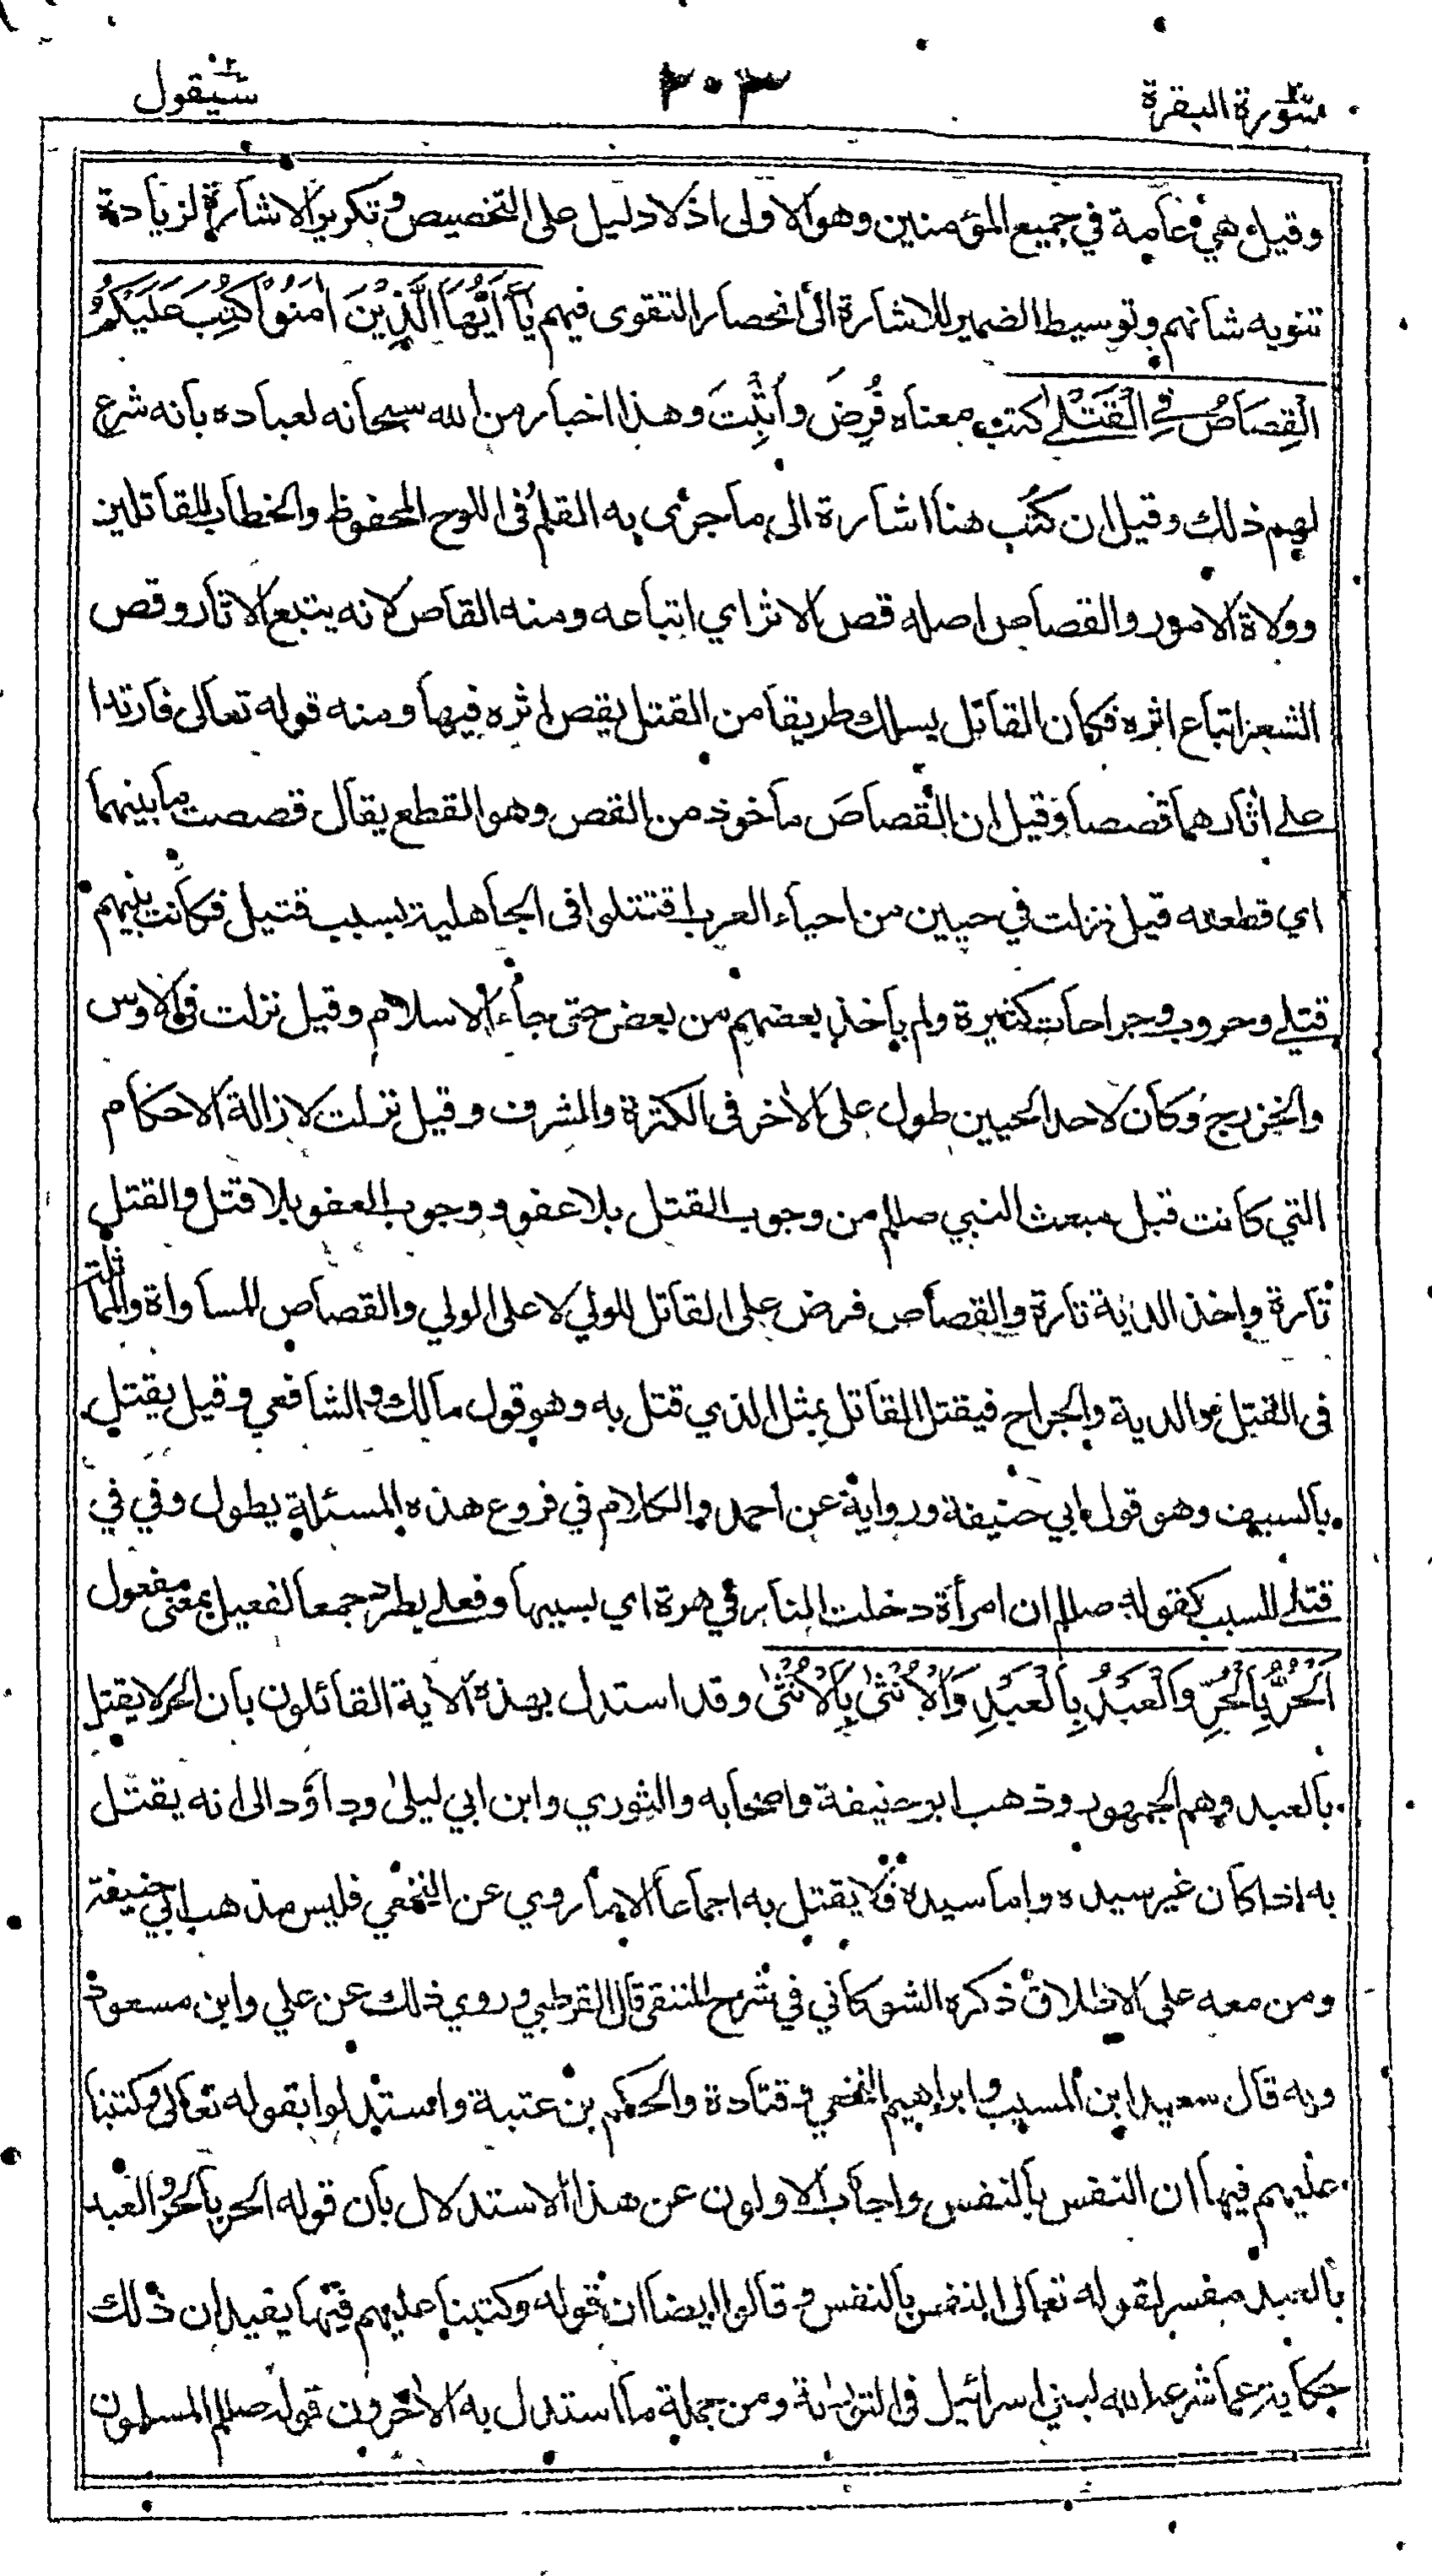 سورة البقرة
٢٠٣
سيقول
وقيل هي عامة في جميع المؤمنين وهو الاولى اذ لا دليل على التخصيص وتكرير الاشارة لزيادة
تنويه شانهم وتوسيط الضمير للاشارة الى انحصار التقوى فيهم يَا أَيُّهَا الَّذِيْنَ اٰمَنُوْا كُتِبَ عَلَيْكُمُ
الْقِصَاصُ فِي الْقَتْلٰى كتب معناه فُرِضَ وأُثْبِتَ وهذا اخبار من الله سبحانه لعباده بانه شرع
لهم ذلك وقيل ان كُتِب هنا اشارة الى ما جرى به القلم فى اللوح المحفوظ والخطاب للقاتلين
وولاة الامور والقصاص اصله قص الاثر اي اتباعه ومنه القاص لانه يتبع الاثار وقص
الشعر اتباع اثره فكان القاتل يسلك طريقا من القتل يقص اثره فيها ومنه قوله تعالى فارتدا
على اثارهما قصصا وقيل ان القصاص ماخوذ من القص وهو القطع يقال قصصت ما بينهما
اي قطعته قيل نزلت في حيين من احياء العرب اقتتلوا فى الجاهلية بسبب قتيل فكانت بينهم
قتلى وحروب وجراحات كثيرة ولم ياخذ بعضهم من بعض حتى جاء الاسلام وقيل نزلت فى الاوس
والخزرج وكان لاحد الحيين طول على الاخر فى الكثرة والشرف وقيل نزلت لازالة الاحكام
التي كانت قبل مبعث النبي صللم من وجوب القتل بلا عفو ووجوب العفو بلا قتل والقتل
تارة واخذ الدية تارة والقصاص فرض على القاتل للولي لا على الولي والقصاص المساواة والمماثلة
فى القتل والدية والجراح فيقتل القاتل بمثل الذي قتل به وهو قول مالك والشافعي وقيل يقتل
بالسيف وهو قول ابي حنيفة ورواية عن احمد والكلام في فروع هذه المسئلة يطول وفي في
قتلى للسبب كقوله صللم ان امرأة دخلت النار في هرة اي بسببها وفعلى يطرد جمعا لفعيل بمعنى مفعول
اَلْحُرُّ بِالْحُرِّ وَالْعَبْدُ بِالْعَبْدِ وَالْاُنْثٰى بِالْاُنْثٰى وقد استدل بهذه الاية القائلون بان الحر لا يقتل
بالعبد وهم الجمهور وذهب ابو حنيفة واصحابه والثوري وابن ابي ليلى وداؤد الى انه يقتل
به اذا كان غير سيده واما سيده فلا يقتل به اجماعا الا ما روي عن النخعي فليس مذهب ابي حنيفة
ومن معه على الاطلاق ذكره الشوكاني في شرح المنتقى قال القرطبي وروي ذلك عن علي وابن مسعود
وبه قال سعيد ابن المسيب وابراهيم النخعي وقتادة والحكم بن عتبة واستدلوا بقوله تعالى وكتبنا
عليهم فيها ان النفس بالنفس واجاب الاولون عن هذا الاستدلال بان قوله الحر بالحر والعبد
بالعبد مفسر لقوله تعالى النفس بالنفس وقالوا ايضا ان قوله وكتبنا عليهم فيها يفيد ان ذلك
حكاية عما شرعه الله لبني اسرائيل فى التوراة ومن جملة ما استدل به الاخرون قوله صللم المسلمون